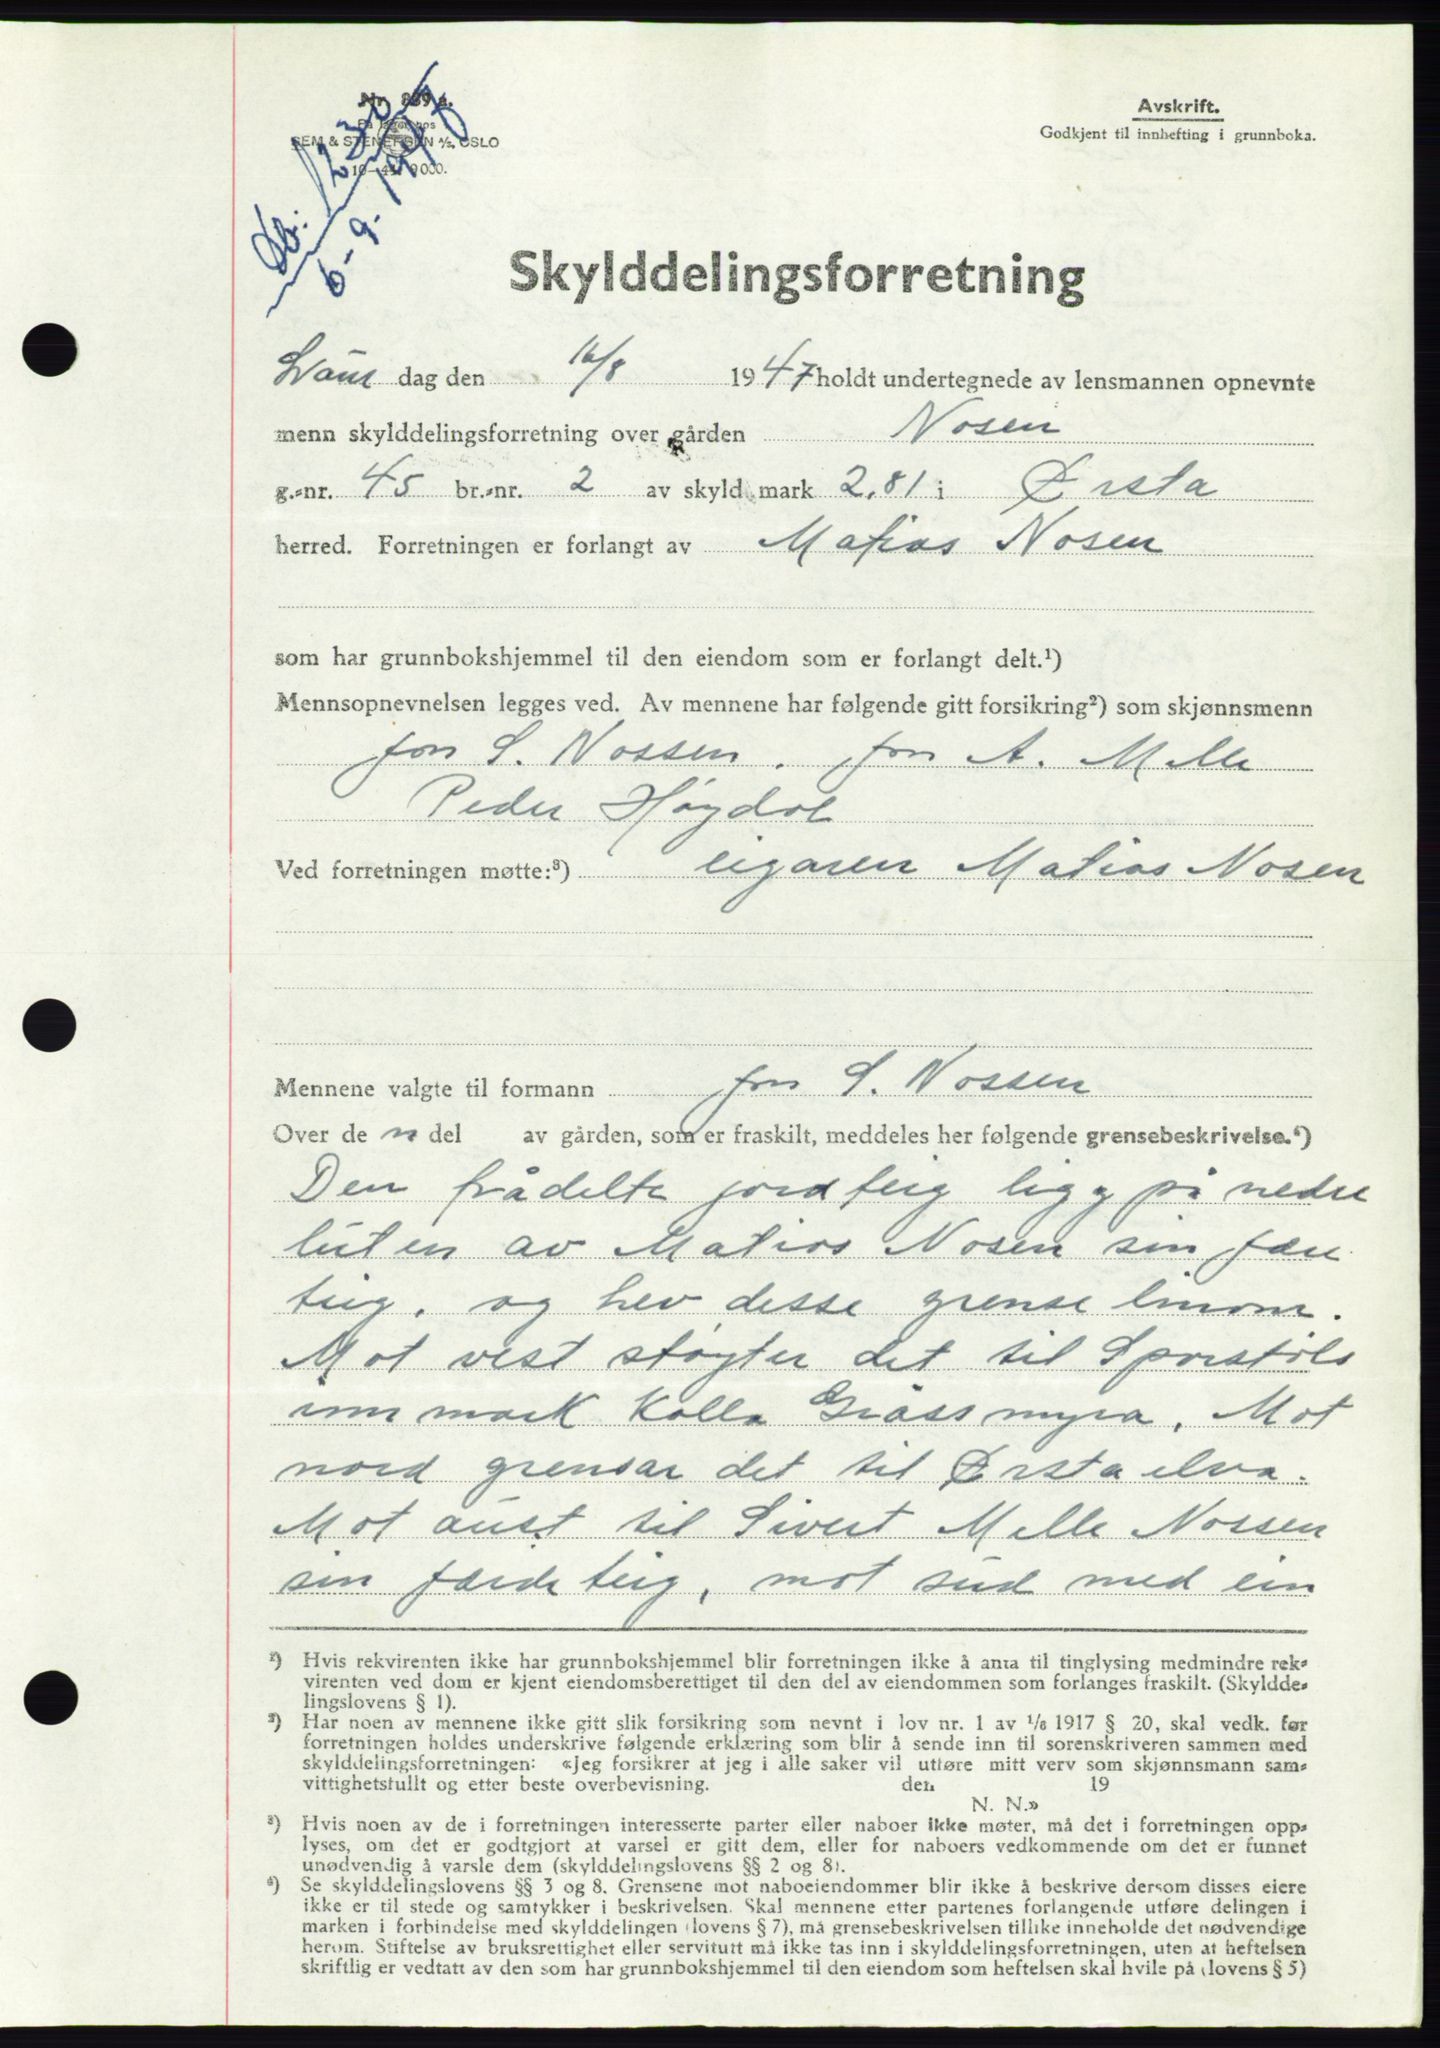 Nr. 839 a.
På lager hos
SEM & STENERSEN A/S, OSLO
10—41. 9000.
Db. 1230
6-9-1947
Avskrift.
Godkjent til innhefting i grunnboka.
Skylddelingsforretning
Laur dag den 16/8 1947 holdt undertegnede av lensmannen opnevnte
menn skylddelingsforretning over gården Nosen
g.-nr. 45 br.-nr. 2 av skyld mark 2,81 i Ørsta
herred. Forretningen er forlangt av Matias Nosen
som har grunnbokshjemmel til den eiendom som er forlangt delt.¹)
Mennsopnevnelsen legges ved. Av mennene har følgende gitt forsikring²) som skjønnsmenn
Jon S. Nossen. Jon A. Melle
Peder Høydal
Ved forretningen møtte:³) eigaren Matias Nosen
Mennene valgte til formann Jon S. Nossen
Over de n del av gården, som er fraskilt, meddeles her følgende grensebeskrivelse.⁴)
Den frådelte jordteig ligg på nedre
luten av Matias Nosen sin
teig, og hev desse grense
Mot vest støyter det til Sporstøls
innmark Kalla Gråssmyra. Mot
nord grensar det til Ørsta elva.
Mot aust til Sivert Melle Nossen
sin teig, mot sud med ein
¹) Hvis rekvirenten ikke har grunnbokshjemmel blir forretningen ikke å anta til tinglysing medmindre rek-
virenten ved dom er kjent eiendomsberettiget til den del av eiendommen som forlanges fraskilt. (Skyldde-
lingslovens § 1).
²) Har noen av mennene ikke gitt slik forsikring som nevnt i lov nr. 1 av 1/6 1917 § 20, skal vedk. før
forretningen holdes underskrive følgende erklæring som blir å sende inn til sorenskriveren sammen med
skylddelingsforretningen: «Jeg forsikrer at jeg i alle saker vil utføre mitt verv som skjønnsmann sam-
vittighetsfullt og etter beste overbevisning. den 19
N. N.»
³) Hvis noen av de i forretningen interesserte parter eller naboer ikke møter, må det i forretningen opp-
lyses, om det er godtgjort at varsel er gitt dem, eller for naboers vedkommende om det er funnet
unødvendig å varsle dem (skylddelingslovens §§ 2 og 8).
⁴) Se skylddelingslovens §§ 3 og 8. Grensene mot naboeiendommer blir ikke å beskrive dersom disses eiere
ikke er til stede og samtykker i beskrivelsen. Skal mennene etter partenes forlangende utføre delingen i
marken i forbindelse med skylddelingen (lovens § 7), må grensebeskrivelsen tillike inneholde det nødvendige
herom. Stiftelse av bruksrettighet eller servitutt må ikke tas inn i skylddelingsforretningen, uten at heftelsen
skriftlig er vedtatt av den som har grunnbokshjemmel til den eiendom som heftelsen skal hvile på (lovens § 5)